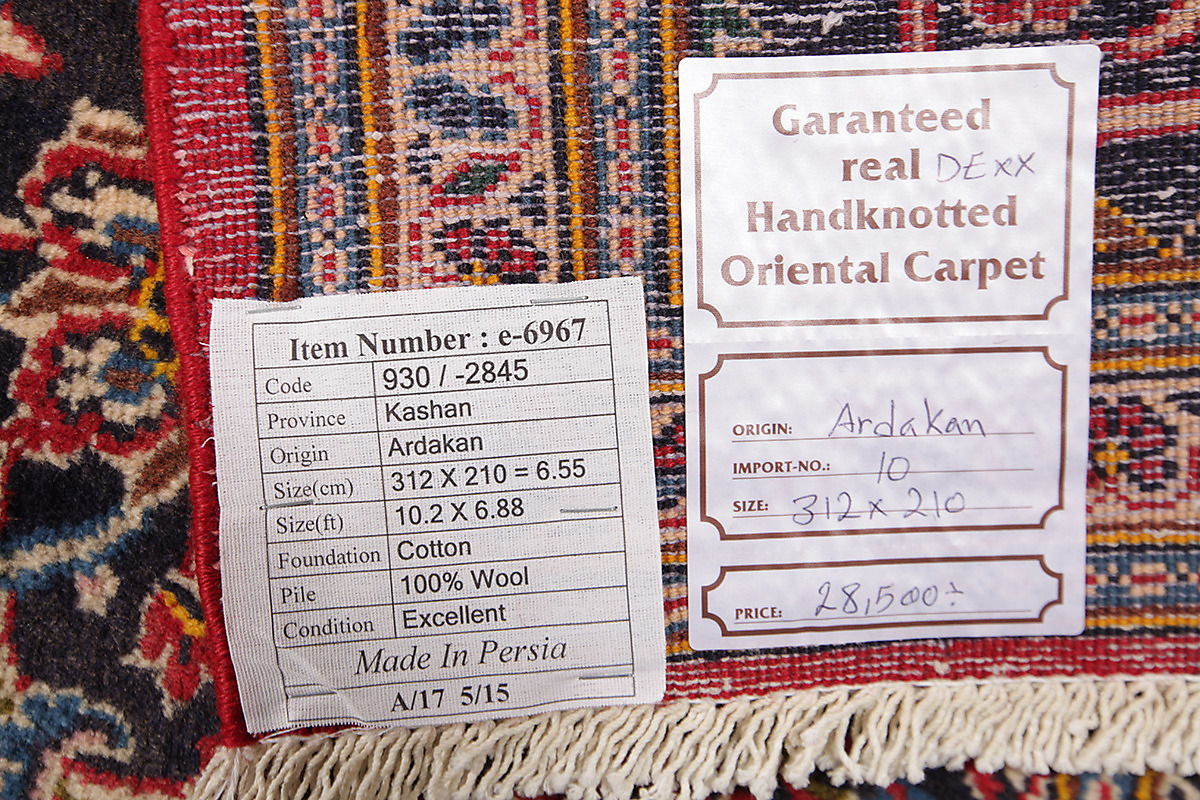 Item Number : e-6967
Code 930 / -2845
Province Kashan
Origin Ardakan
Size(cm) 312 X 210 = 6.55
Size(ft) 10.2 X 6.88
Foundation Cotton
Pile 100% Wool
Condition Excellent
Made In Persia
A/17 5/15
Garanteed
real DExx
Handknotted
Oriental Carpet
ORIGIN: Ardakan
IMPORT-NO.: 10
SIZE: 312x210
PRICE: 28,500÷